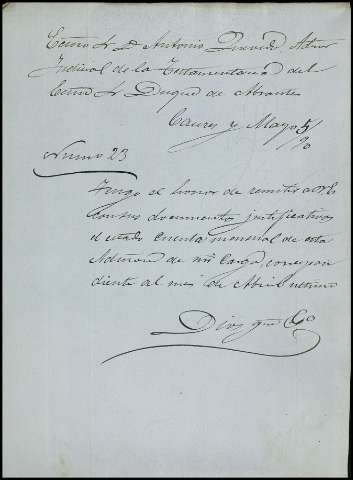 Excmo Sr Dn Antonio Quevedo Admor
Judicial de la Testamentaría del
Excmo Sr Duque de Abrantes
Caceres y Mayo 5/90
Numo 23
Tengo el honor de remitir a V.E
con sus documentos justificativos
el cuenta mensual de esta
Admon de mi Cargo correspon
diente al mes de Abril último
Dios gue